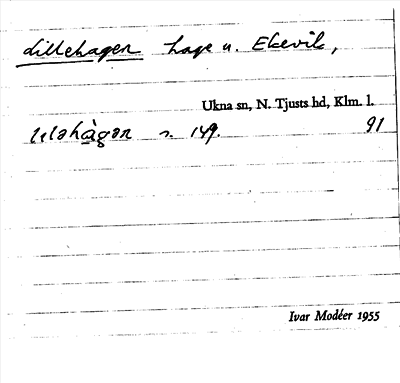 Lillehagen hage u. Ekevik,
Ukna sn, N. Tjusts hd, Klm. l.
s. 149. 91
Ivar Modéer 1955